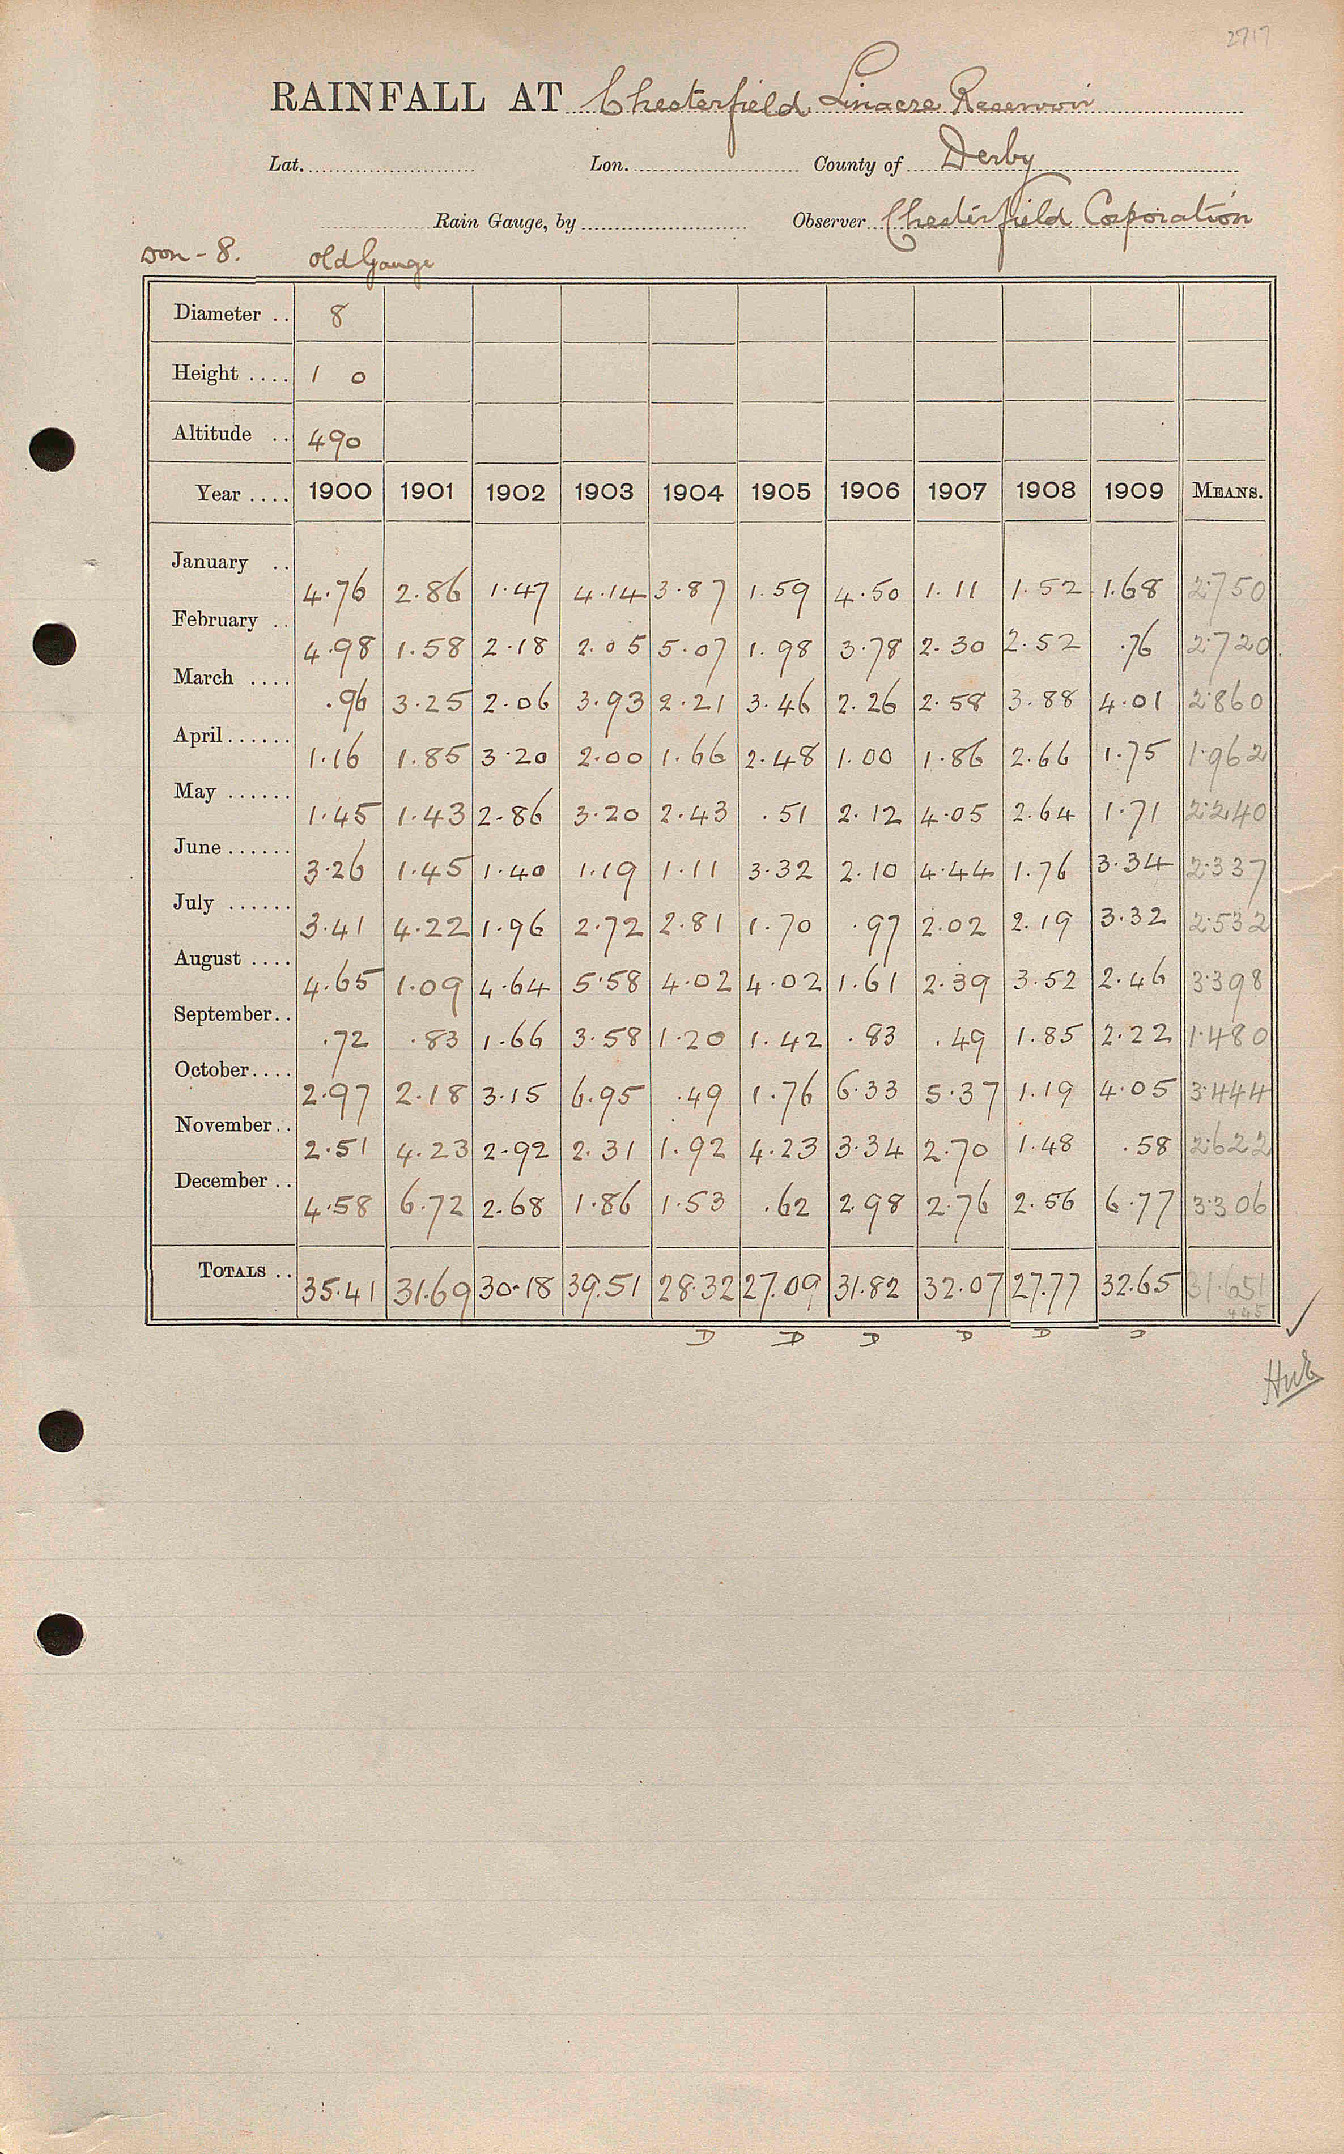 2717
RAINFALL AT Chesterfield Linacre Reservoir
Lat. Lon. County of Derby
Rain Gauge, by Observer Chesterfield Corporation
Don - 8. Old Gauge
Diameter .. 8
Height .... 1 0
Altitude .. 490
Year .... 1900 1901 1902 1903 1904 1905 1906 1907 1908 1909 MEANS.
January .. 4.76 2.86 1.47 4.14 3.87 1.59 4.50 1.11 1.52 1.68 2.750
February .. 4.98 1.58 2.18 2.05 5.07 1.98 3.78 2.30 2.52 .76 2.720
March .... .96 3.25 2.06 3.93 2.21 3.46 2.26 2.58 3.88 4.01 2.860
April...... 1.16 1.85 3.20 2.00 1.66 2.48 1.00 1.86 2.66 1.75 1.962
May ...... 1.45 1.43 2.86 3.20 2.43 .51 2.12 4.05 2.64 1.71 2.240
June ...... 3.26 1.45 1.40 1.19 1.11 3.32 2.10 4.44 1.76 3.34 2.337
July ...... 3.41 4.22 1.96 2.72 2.81 1.70 .97 2.02 2.19 3.32 2.532
August .... 4.65 1.09 4.64 5.58 4.02 4.02 1.61 2.39 3.52 2.46 3.398
September.. .72 .83 1.66 3.58 1.20 1.42 .83 .49 1.85 2.22 1.480
October.... 2.97 2.18 3.15 6.95 .49 1.76 6.33 5.37 1.19 4.05 3.444
November .. 2.51 4.23 2.92 2.31 1.92 4.23 3.34 2.70 1.48 .58 2.622
December .. 4.58 6.72 2.68 1.86 1.53 .62 2.98 2.76 2.56 6.77 3.306
TOTALS .. 35.41 31.69 30.18 39.51 28.32 27.09 31.82 32.07 27.77 32.65 31.651
445
D D D D D D